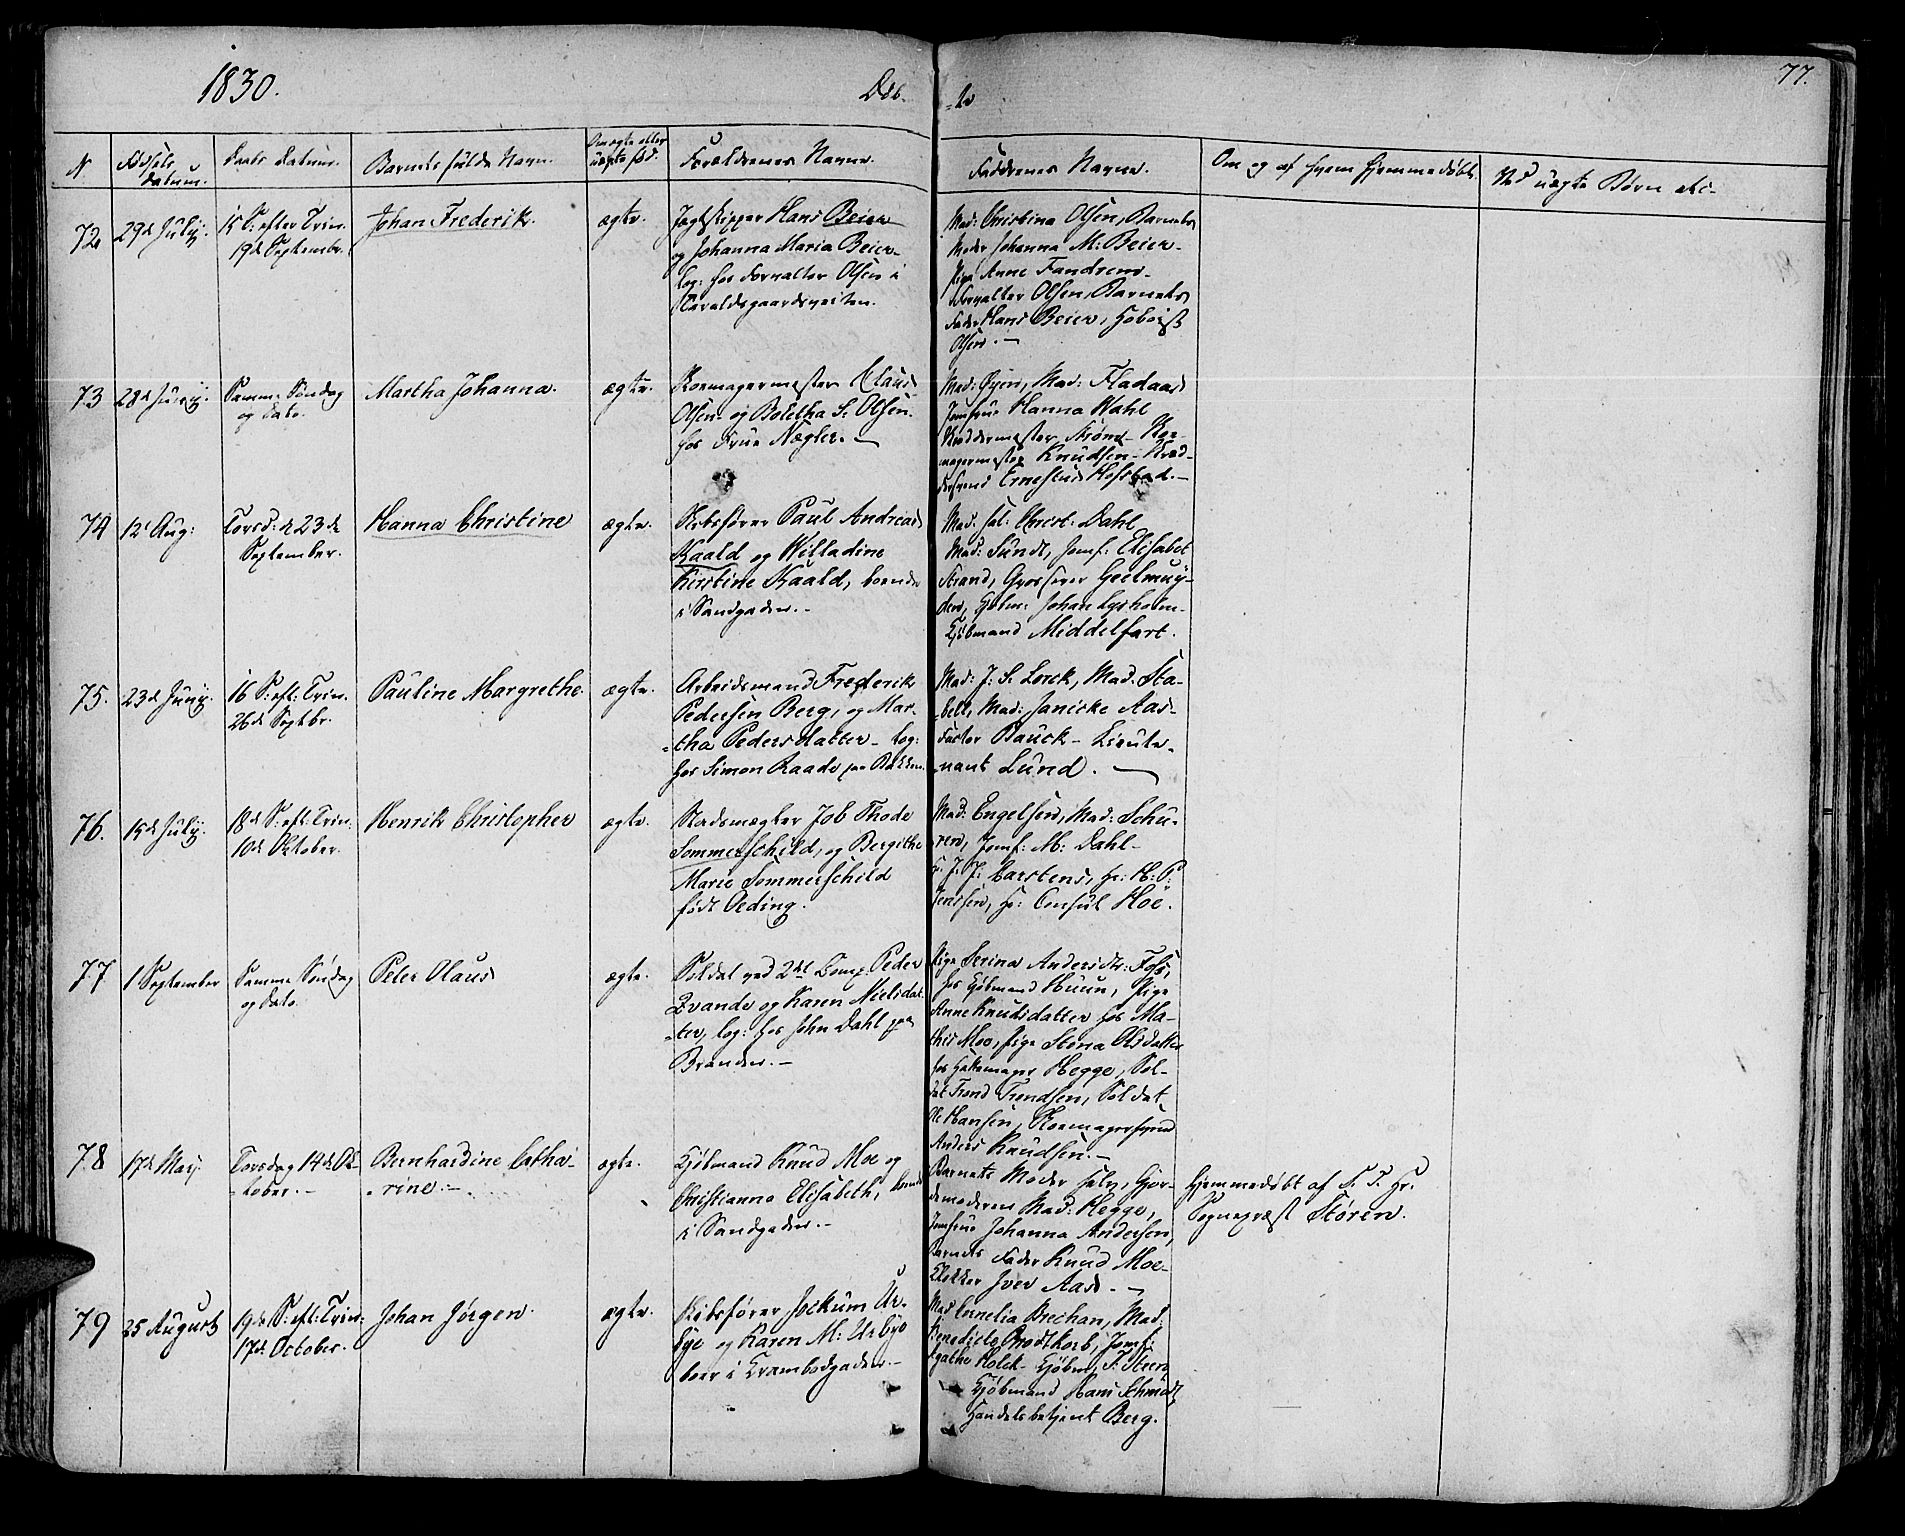 1830.
Døb-
-te
77.
N
Fødsels
Datum.
Daabs Datum.
Barnets fulde Navn.
Om ægte eller
uægte fød:
Forældrenes Navne.
Faddrenes Navne.
Om og af hvem hjemmedøbt.
Ved uægte Børn etc-
72
29de Julij.
15 S: efter Trin.
19de September.
Johan Frederik.
ægte.
Jagtskipper Hans Beier
og Johanna Maria Beier-
log: hos Forvalter Olsen i
Taraldsgaardsveiten.
Mad: Christina Olsen, Barnets
Moder Johanna M: Beier-
Pige Anne Fandrem-
Forvalter Olsen, Barnets
Fader Hans Beier, Hoboist
Olsen.-
73
28de Junij.
Samme Søndag
og Dato.
Martha Johanna.
ægte.
Skomagermester Claus
Olsen- og Boletha S: Olsen.
hos Frue Nægler.-
Mad: Øyen, Mad: Fladaas
Jomfrue Hanna Wahl
Skreddermester Strøm- Sko-
magermester Knudsen- Skræd-
dersvend Ernestus Hofstad.-
74
12t Aug:
Torsd: d. 23de
September.
Hanna Christine
ægte.
Skibsfører Paul Andreas
Kaald og Willadine
Kirstine Kaald, boende
i Sandgaden.-
Mad. sal: Christ: Dahl
Mad: Sundt, Jomf: Elisabet
Strand, Grosserer Geelmuy-
den, Kjøbm: Johan Lysholm-
Kjøbmand Middelfart.
75.
23de Junij.
16 S: eft: Trin.
26de Septbr.
Pauline Margrethe.
ægte.
Arbeidsmand Frederik
Pedersen Berg, og Mar-
-tha Pedersdatter- log:
hos Simon Raade paa Bakken.
Mad: J: S. Lorck, Mad: Sta-
bell, Mad: Janicke Aas-
Factor Bauck- Lieute-
-nant Lund.-
76.
15de Julij.
18de S: eft: Trin:
10de Oktober.
Henrik Christopher
ægte.
Stadsmægler Job Thode
Sommerschild, og Bergithe
Marie Sommerschild
født Oeding.
Mad: Engelsen, Mad: Schu-
ren, Jomf: M: Dahl-
Hr. J: J: Carstens, Hr: H: P:
Jenssen, Hr: Consul Hoe.
77
1 September
Samme Søndag
og Dato.
Peter Olaus
ægte.
Soldat ved 2det Comp. Peder
Qvande og Karen Nielsdat-
-ter, log: hos John Dahl paa
Branden.-
Pige Serina Andersdtr: Foss,
hos Kjøbmand Huun, Pige
Anne Knudsdatter hos Ma-
this Moe, Pige Stena Olsdatter
hos Hattemager Hegge, Sol-
dat Trond Trondsen, Soldat
Ole Hansen, Skomagersvend
Anders Knudsen.-
78
17de Maij
Torsdag 14de Ok-
-tober.-
Bernhardine Catha-
-rine.-
ægte.
Kjøbmand Knud Moe og
Christianna Elisabeth, boende
i Sandgaden.-
Barnets Moder selv, Gjor-
demoderen Mad: Hegge,
Jomfrue Johanna Andersen,
Barnets Fader Knud Moe-
Klokker Iver Aas.-
Hjemmedøbt af S. T. Hr.
Sognepræst Støren.
79
25 August
19de S: eft: Trin:
17de October.
Johan Jørgen.
ægte.
Skibsfører Jockum Ur-
bye og Karen M: Urbye
boer i Krambodgaden.-
Mad Cornelia Brechan, Mad:
Benedicte Brodtkorb, Jomf:
Agathe Holck- Kjøbm: T. Steen,
Kjøbmand Hans Schmidt,
Handelsbetjent Berg.